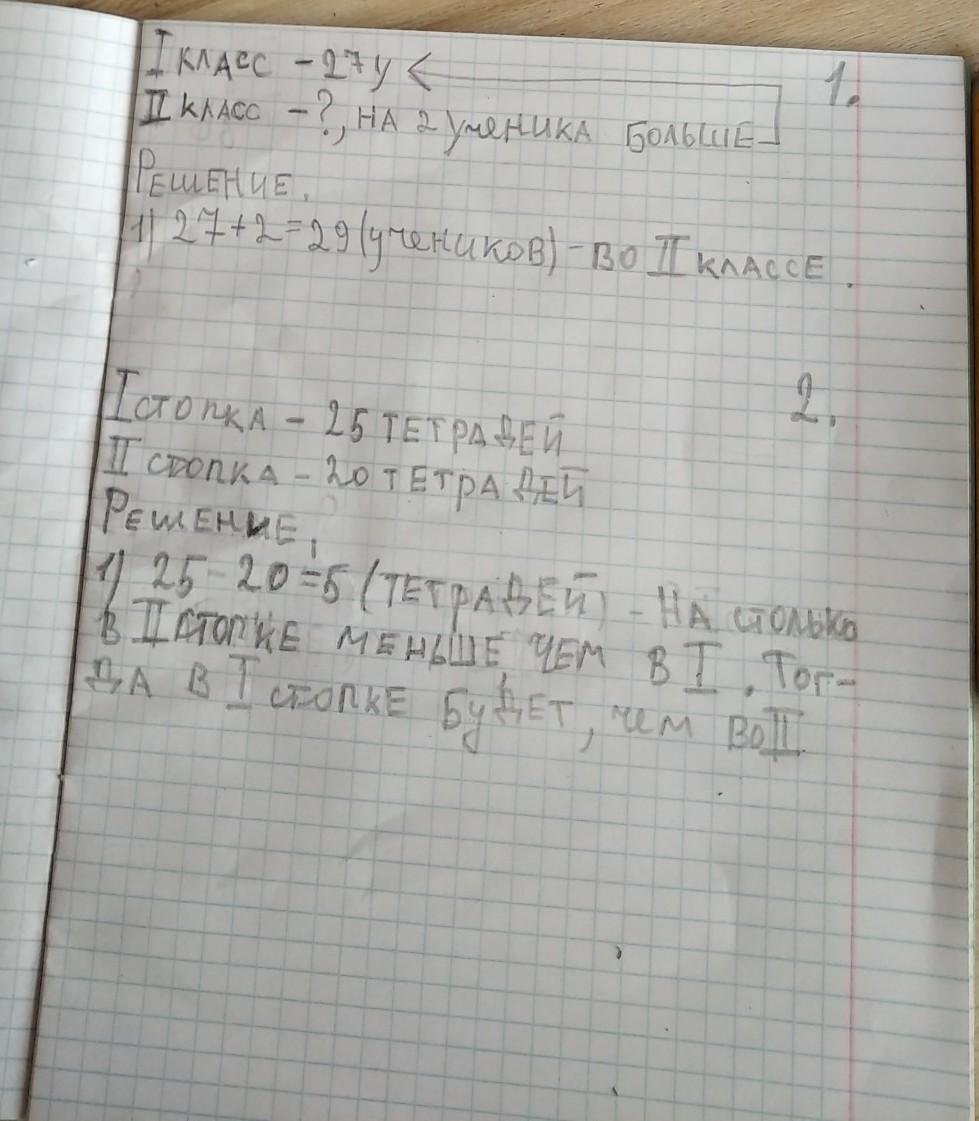 I класс – 27у
1.
II класс – ?, на 2 ученика больше
Решение.
1) 27+2=29(учеников) – во II классе.
2.
I стопка – 25 тетрадей
II стопка – 20 тетрадей
Решение.
1) 25–20=5 (тетрадей) – на столько
в II стопке меньше, чем в I. Тог-
да в I стопке будет, чем во II